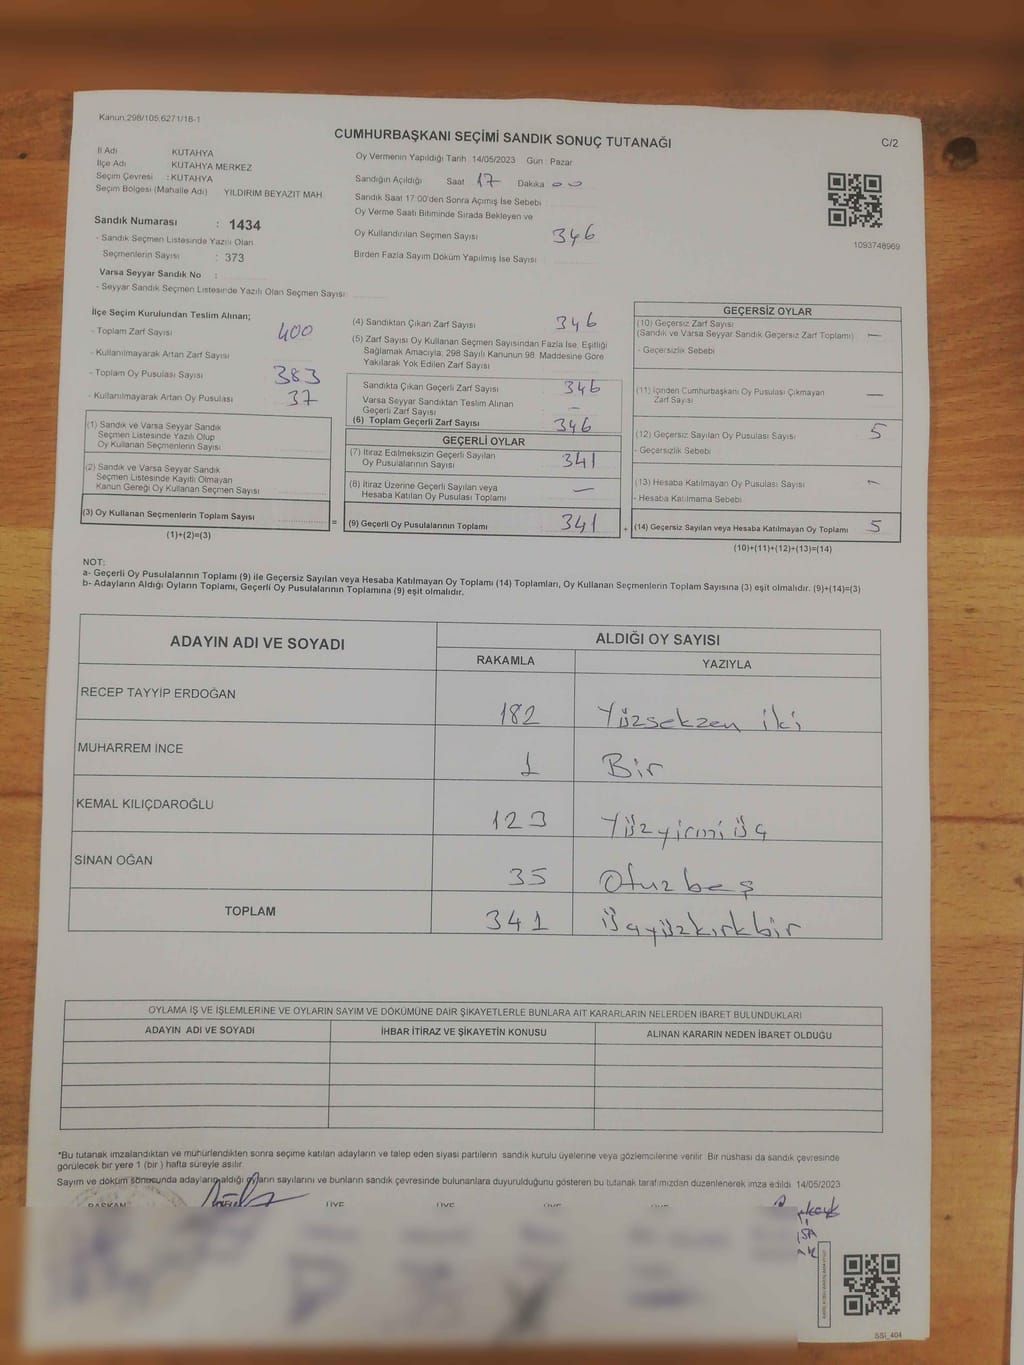 Kanun.298/105,6271/18-1
CUMHURBAŞKANI SEÇİMİ SANDIK SONUÇ TUTANAĞI
C/2
İl Adı KUTAHYA
İlçe Adı KUTAHYA MERKEZ
Seçim Çevresi : KUTAHYA
Seçim Bölgesi (Mahalle Adı) YILDIRIM BEYAZIT MAH.
Sandık Numarası : 1434
- Sandık Seçmen Listesinde Yazılı Olan
Seçmenlerin Sayısı : 373
Varsa Seyyar Sandık No :
- Seyyar Sandık Seçmen Listesinde Yazılı Olan Seçmen Sayısı:
Oy Vermenin Yapıldığı Tarih : 14/05/2023 Gün : Pazar
Sandığın Açıldığı Saat 17 Dakika 00
Sandık Saat 17:00'den Sonra Açımış İse Sebebi
Oy Verme Saati Bitiminde Sırada Bekleyen ve
Oy Kullandırılan Seçmen Sayısı 346
Birden Fazla Sayım Döküm Yapılmış İse Sayısı
1093748969
İlçe Seçim Kurulundan Teslim Alınan;
- Toplam Zarf Sayısı 400
- Kullanılmayarak Artan Zarf Sayısı
- Toplam Oy Pusulası Sayısı 383
- Kullanılmayarak Artan Oy Pusulası 37
(1) Sandık ve Varsa Seyyar Sandık
Seçmen Listesinde Yazılı Olup
Oy Kullanan Seçmenlerin Sayısı
(2) Sandık ve Varsa Seyyar Sandık
Seçmen Listesinde Kayıtlı Olmayan
Kanun Gereği Oy Kullanan Seçmen Sayısı
(3) Oy Kullanan Seçmenlerin Toplam Sayısı =
(1)+(2)=(3)
(4) Sandıktan Çıkan Zarf Sayısı 346
(5) Zarf Sayısı Oy Kullanan Seçmen Sayısından Fazla İse, Eşitliği
Sağlamak Amacıyla; 298 Sayılı Kanunun 98. Maddesine Göre
Yakılarak Yok Edilen Zarf Sayısı
Sandıkta Çıkan Geçerli Zarf Sayısı 346
Varsa Seyyar Sandıktan Teslim Alınan
Geçerli Zarf Sayısı —
(6) Toplam Geçerli Zarf Sayısı 346
GEÇERLİ OYLAR
(7) İtiraz Edilmeksizin Geçerli Sayılan
Oy Pusulalarının Sayısı 341
(8) İtiraz Üzerine Geçerli Sayılan veya
Hesaba Katılan Oy Pusulası Toplamı —
(9) Geçerli Oy Pusulalarının Toplamı 341 +
GEÇERSİZ OYLAR
(10) Geçersiz Zarf Sayısı
(Sandık ve Varsa Seyyar Sandık Geçersiz Zarf Toplamı) —
- Geçersizlik Sebebi
(11) İçinden Cumhurbaşkanı Oy Pusulası Çıkmayan
Zarf Sayısı —
(12) Geçersiz Sayılan Oy Pusulası Sayısı 5
- Geçersizlik Sebebi
(13) Hesaba Katılmayan Oy Pusulası Sayısı —
- Hesaba Katılmama Sebebi
(14) Geçersiz Sayılan veya Hesaba Katılmayan Oy Toplamı 5
(10)+(11)+(12)+(13)=(14)
NOT:
a- Geçerli Oy Pusulalarının Toplamı (9) ile Geçersiz Sayılan veya Hesaba Katılmayan Oy Toplamı (14) Toplamları, Oy Kullanan Seçmenlerin Toplam Sayısına (3) eşit olmalıdır. (9)+(14)=(3)
b- Adayların Aldığı Oyların Toplamı, Geçerli Oy Pusulalarının Toplamına (9) eşit olmalıdır.
ADAYIN ADI VE SOYADI ALDIĞI OY SAYISI
RAKAMLA YAZIYLA
RECEP TAYYİP ERDOĞAN 182 Yüzseksen iki
MUHARREM İNCE 1 Bir
KEMAL KILIÇDAROĞLU 123 Yüzyirmi üç
SİNAN OĞAN 35 Otuzbeş
TOPLAM 341 üçyüzkırkbir
OYLAMA İŞ VE İŞLEMLERİNE VE OYLARIN SAYIM VE DÖKÜMÜNE DAİR ŞİKAYETLERLE BUNLARA AİT KARARLARIN NELERDEN İBARET BULUNDUKLARI
ADAYIN ADI VE SOYADI İHBAR İTİRAZ VE ŞİKAYETİN KONUSU ALINAN KARARIN NEDEN İBARET OLDUĞU
*Bu tutanak imzalandıktan ve mühürlendikten sonra seçime katılan adayların ve talep eden siyasi partilerin sandık kurulu üyelerine veya gözlemcilerine verilir. Bir nüshası da sandık çevresinde
görülecek bir yere 1 (bir ) hafta süreyle asılır.
Sayım ve döküm sonucunda adayların aldığı oyların sayılarını ve bunların sandık çevresinde bulunanlara duyurulduğunu gösteren bu tutanak tarafımızdan düzenlenerek imza edildi. 14/05/2023
BAŞKAN ÜYE ÜYE ÜYE ÜYE
SSİ_404